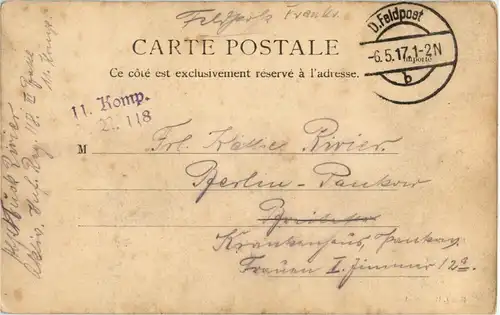 Feldpost Frankr.
CARTE POSTALE
Ce côté est exclusivement réservé à l'adresse.
D. Feldpost
-6.5.17.1-2N
b
11. Komp.
118
M
Frl. Käthe Rivier
Berlin-Pankow
Krankenhaus Pankow
Frauen I. Zimmer 12a.
Rivier
118
11. Komp.